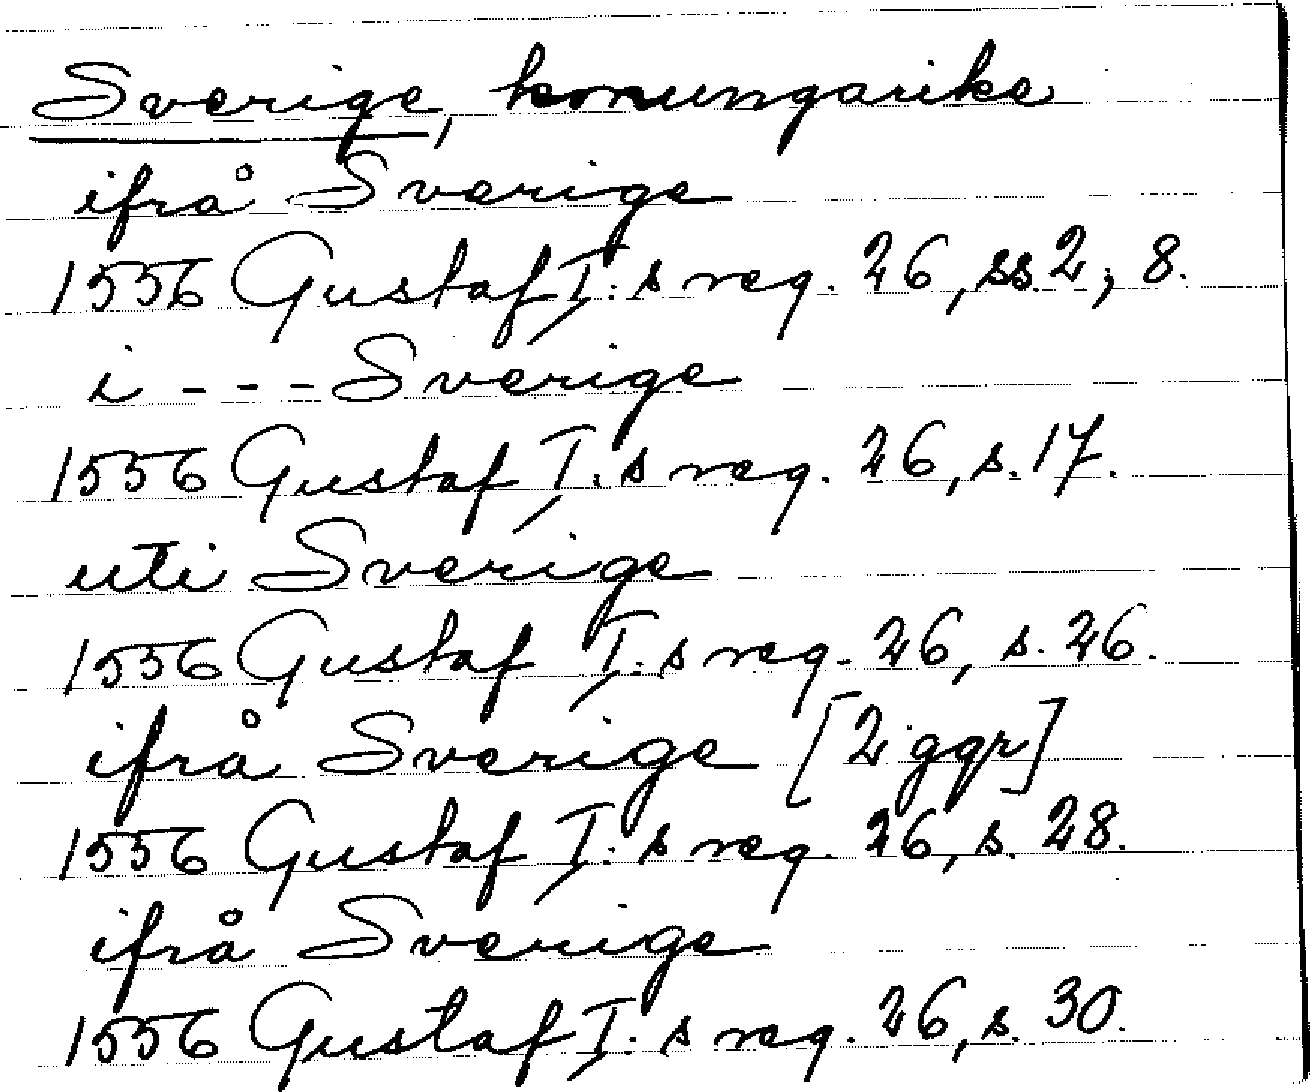 Sverige, konungarike
ifrå Sverige
1556 Gustaf I:s reg. 26, ss. 2; 8.
i - - - Sverige
1556 Gustaf I:s reg. 26, s. 17.
uti Sverige
1556 Gustaf I:s reg. 26, s. 26.
ifrå Sverige [2 ggr]
1556 Gustaf I:s reg. 26, s. 28.
ifrå Sverige
1556 Gustaf I:s reg. 26, s. 30.